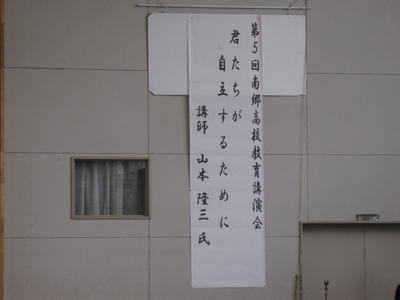 第5回南郷高校教育講演会
君たちが
自立するために
講師 山本隆三氏